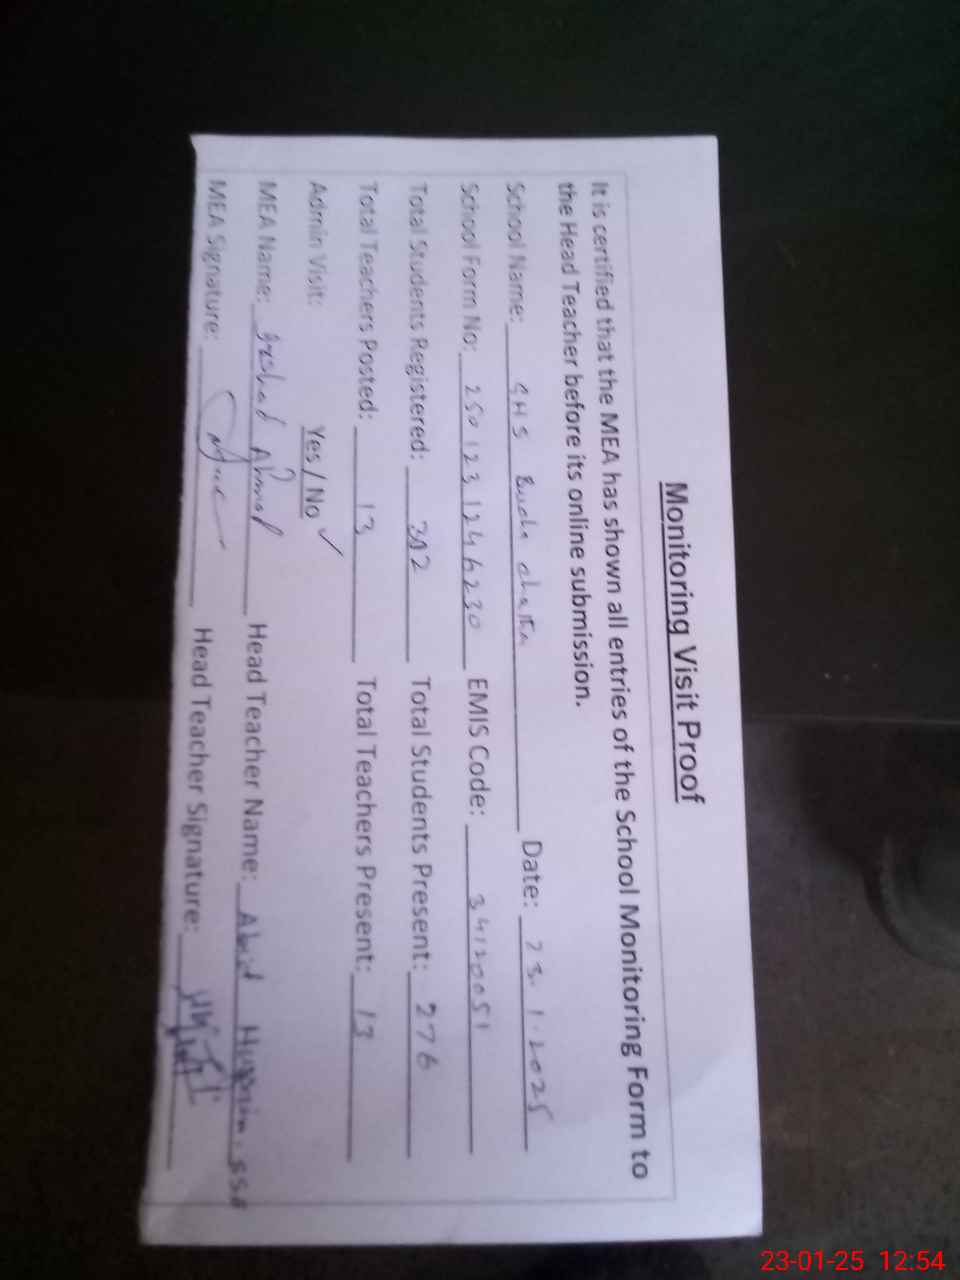 Monitoring Visit Proof
It is certified that the MEA has shown all entries of the School Monitoring Form to
the Head Teacher before its online submission.
School Name: GHS Bucha chatta Date: 23.1.2025
School Form No: 2501231246230 EMIS Code: 34120051
Total Students Registered: 302 Total Students Present: 276
Total Teachers Posted: 13 Total Teachers Present: 13
Admin Visit: Yes / No ✓
MEA Name: Irshad Ahmad Head Teacher Name: Abid Hussain. SSA
MEA Signature: Head Teacher Signature:
23-01-25 12:54